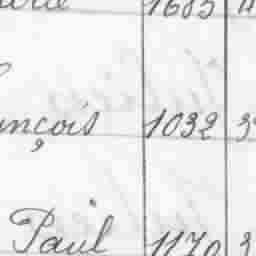 1685
ançois 1032 3
Paul 1170 3